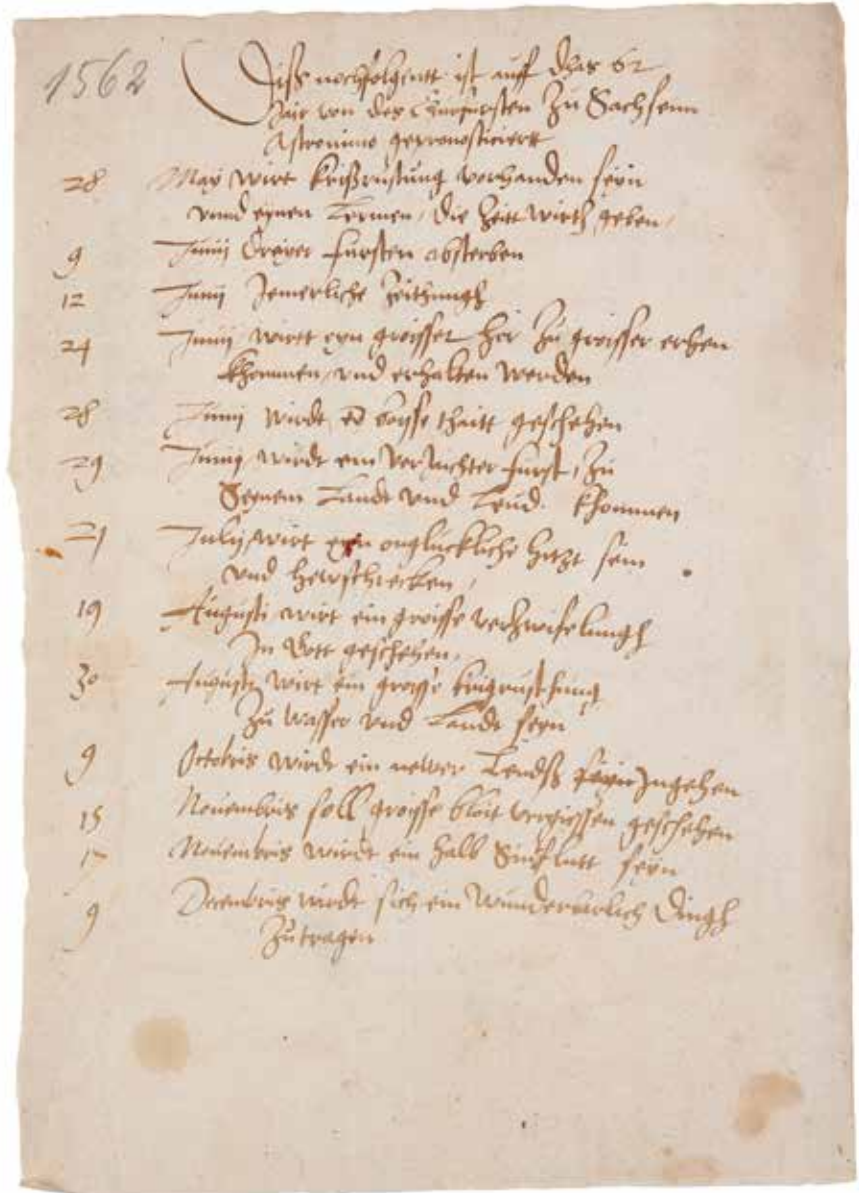 1562
Diß nochfolgentt ist auff dhas 62
Jair von des Churfursten zu Sachsenn
Astronimo gepronosticiertt
28 May wirt krißrustung vorhanden seyn
vnnd eynen Lermen, die Zeitt wirth geben,
9 Junij dreyer fursten absterben
12 Junij Jemerliche Zeithungh
24 Junij wirtt eyn groisser her zu groisser erhen
khommen, vnd erhalten werden
28 Junij wirdt ein boyse thaitt geschehen
29 Junij wirdt ein verjachter furst, zu
Seynem Landt vnd Leud. khommen
21 July, wirt eyn onglückliche hitzt sein
vnd hewschrecken,
19 Augusti wirt ein groisse verzwifelungh
In Gott geschehen,
30 Augusti wirt ein grosse krigrusthung
zu wasser vnd Landt seyn
9 Octobris wirdt ein newer Lendß Ingehen
15 Nouembris soll groisse bloit vergiessen geschehen
17 Nouembris wirdt ein halb Sindflutt seyn
9 Decembris wirdt sich ein wunderbarlich dingh
zutragen